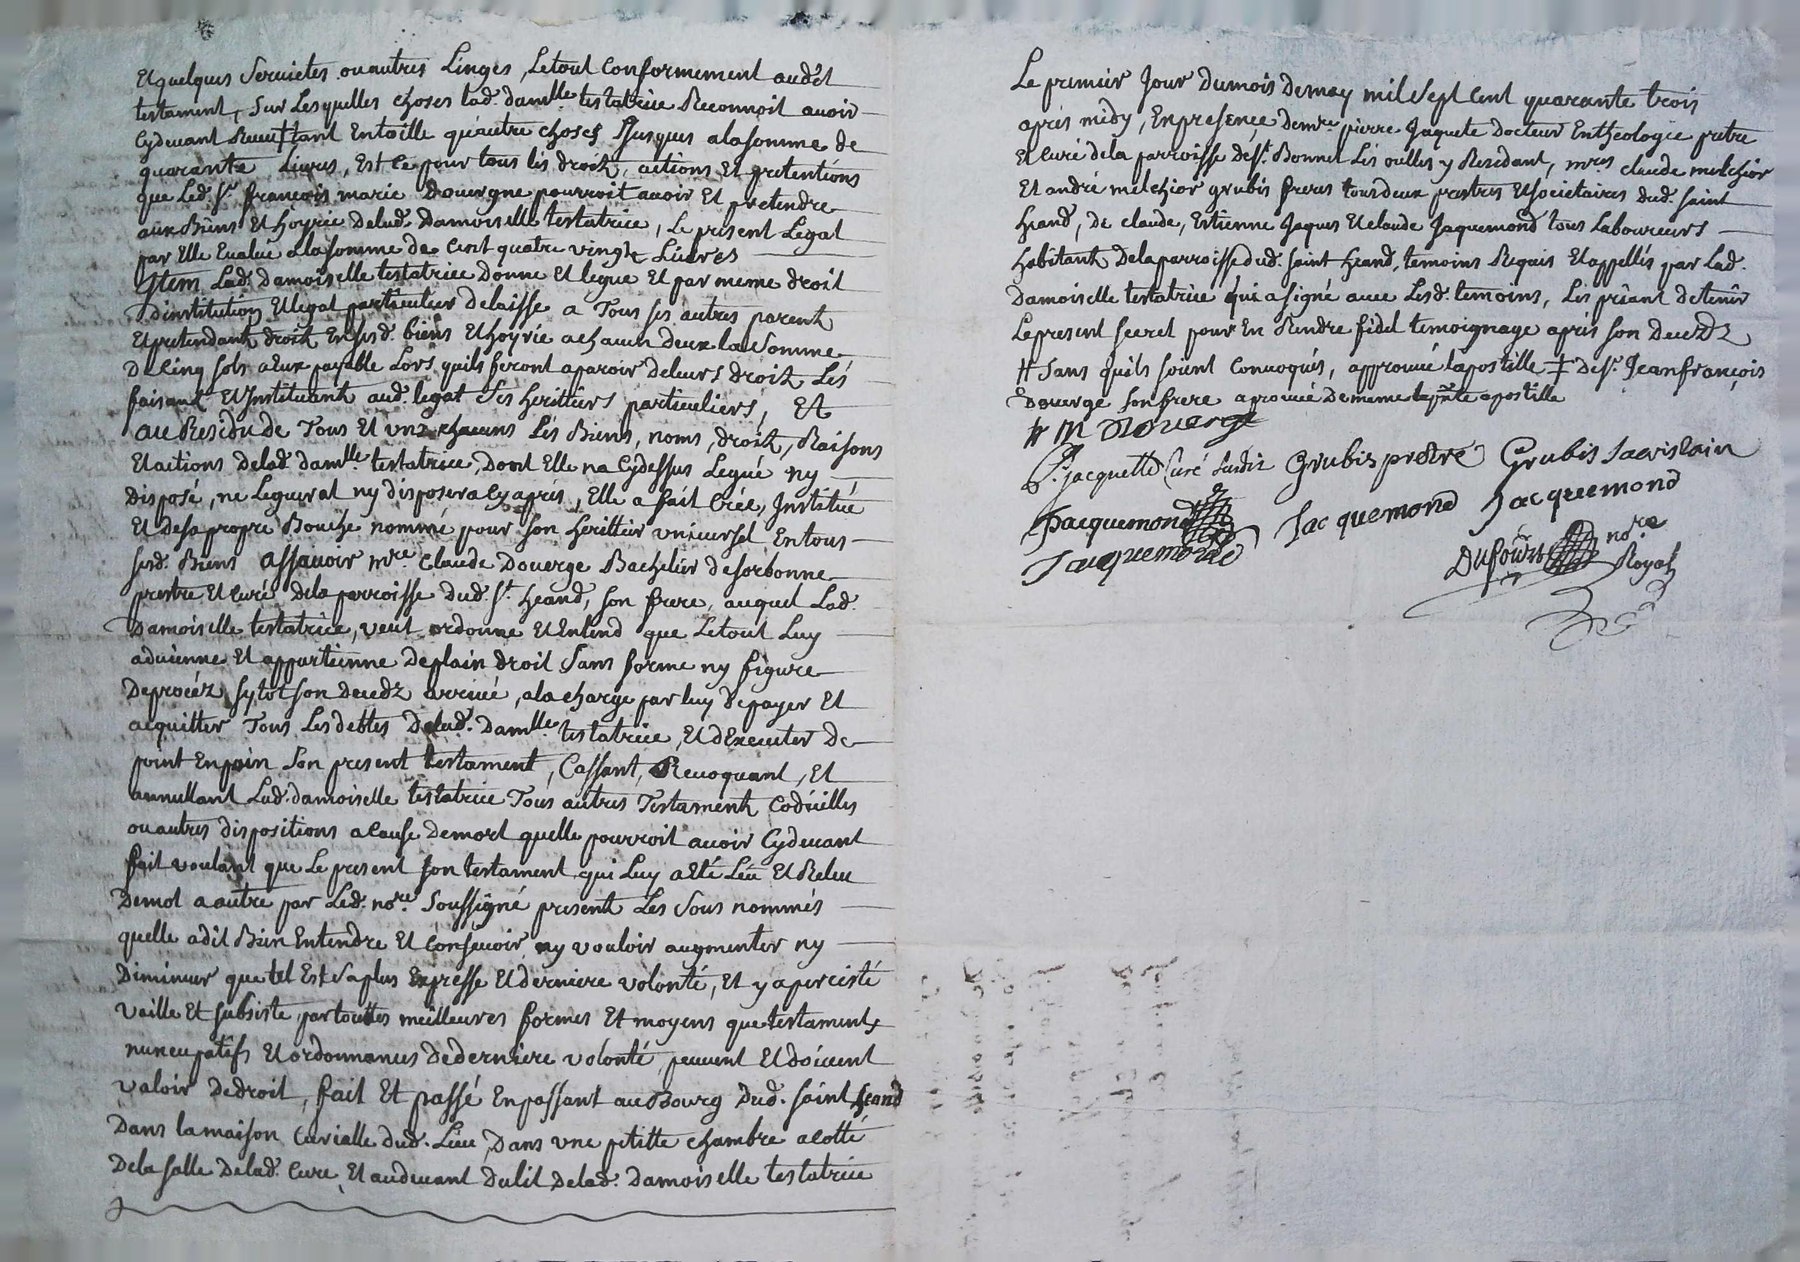 Et quelques Serviettes ou autres Linges, Le tout Conformement aud.t
testament, Sur Lesquelles choses lad. dam.lle testatrice Reconnoit avoir
Cydevant Receu ‡ tant En toille qu'autre choses Jusques a la somme de
quarante Livres, Est Ce pour tous les droits, actions Et pretentions
que Led. S.r françois marie Douergne pourroit avoir Et pretendre
aux Biens Et hoyrie de lad. Damoiselle testatrice, Le present Legat
par Elle Evalué a la somme de Cent quatre vingts Livres
Item Lad. damoiselle testatrice Donne Et legue Et par meme droit
D'institution Et legat particulier delaisse a Tous ses autres parents
Et pretendants droit En sesd. biens Et hoyrie a chacun deux la Somme
De Cinq sols a Eux payable Lors quils feront aparoir de leurs droits Les
faisant Et Instituants aud. legat Ses herittiers particuliers, Et
au Residu de Tous Et uns chacuns Les Biens, noms, droits, Raisons
Et actions de lad. dam.lle testatrice, Dont Elle na Cydessus Legué ny
Disposé, ne Leguerat ny disposera Cy aprés, Elle a fait Créé, Institué
Et de sa propre Bouche nommé pour son herittier universel En tous
sesd. Biens assavoir m.re Claude Douerge Bachelier de sorbonne
prestre Et Curé de la parroisse dud. S.t heand, son frere, auquel Lad.
Damoiselle testatrice, veut ordonne Et Entend que Le tout Luy
advienne Et appartienne de plain droit Sans forme ny figure
De procéz sytot son decedz arrivé, a la charge par luy de payer Et
acquitter Tous Les debtes De lad. Dam.lle testatrice, Et d'Executer de
point En poin Son present testament, Cassant, Revoquant, Et
annullant Lad. damoiselle testatrice Tous autres Testaments Codicilles
ou autres dispositions a Cause de mort quelle pourroit avoir Cydevant
fait voulant que Le present son testament qui Luy a Eté Leu Et Releu
De mot a autre par Led. no.re Soussigné presents Les Sous nommés
quelle a dit Bien Entendre Et Concevoir ny vouloir augmenter ny
Diminuer que tel Est Sa plus Expresse Et derniere volonté, Et y a percisté
Vaille Et subsiste par touttes meilleures formes Et moyens que testaments
nuncupatifs Et ordonnances de derniere volonté peuvent Et doivent
valoir de droit, fait Et passé En passant au Bourg Dud. saint heand
Dans la maison Curialle dud. Lieu, Dans une petitte chambre a Cotté
De la salle De lad. Cure Et au devant du lit de lad. Damoiselle testatrice
Le premier Jour Du mois de may mil Sept Cent quarante trois
aprés midy, En presence de m.re pierre Jaquete Docteur En theologie pretre
Et Curé de la parroisse de S.t Bonnet Les oulles y Residant, m.res claude melchior
Et andré melchior grubis freres tous deux prestres Et societaires dud. saint
heand, de claude, Estienne Jaques Et claude Jaquemond tous Laboureurs
habitants De la parroisse dud. saint heand, temoins Requis Et appellés par Lad.
Damoiselle testatrice qui a signé avec Lesd. temoins, Les priant de tenir
Le present secret pour En Rendre fidel temoignage aprés son decedz
# Sans quils soient Convoqués, approuvé lapostille ‡ de S.r Jean françois
Douerge son frere aprouvé de meme la p.nte apostille
# M Douerge
P. jacquette Curé susdit Grubis prestre Grubis sacristain
Jacquemond Jacquemond Jacquemond
Jacquemond Dufour no.re
Royal